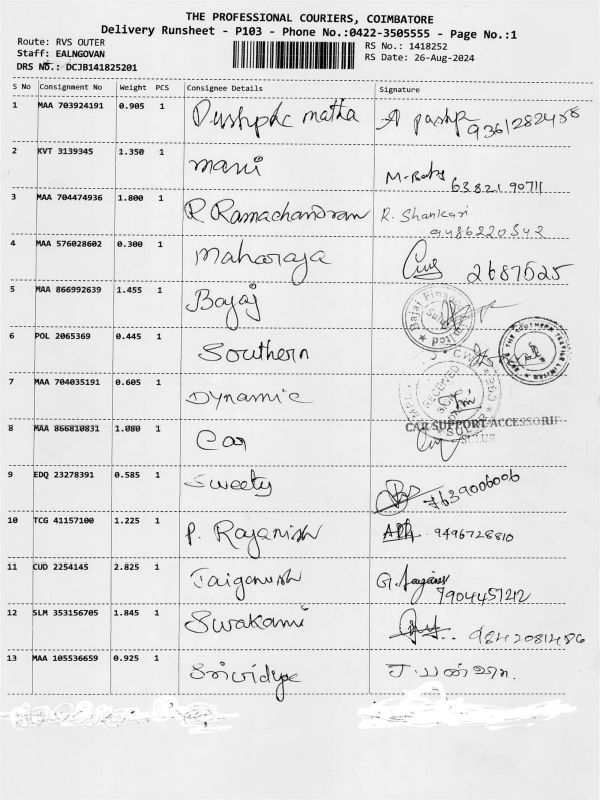 THE PROFESSIONAL COURIERS, COIMBATORE
Delivery Runsheet - P103 - Phone No.:0422-3505555 - Page No.:1
Route: RVS OUTER
Staff: EALNGOVAN
DRS NO.: DCJB141825201
RS No.: 1418252
RS Date: 26-Aug-2024
S No Consignment No Weight PCS Consignee Details Signature
1 MAA 703924191 0.905 1 Pushpha matha A pushp
9361282488
2 KVT 3139345 1.350 1 mani M-Babu
63821 90711
3 MAA 704474936 1.800 1 R. Ramachandran R. Shankari
9486220542
4 MAA 576028602 0.300 1 Maharaja 2687625
5 MAA 866992639 1.455 1 Bajaj
Bajaj Finance Limited
6 POL 2065369 0.445 1 Southern
THE SOUTHERN TEXTILE LIMITED
7 MAA 704035191 0.605 1 Dynamic
RECEIVED
8 MAA 866810831 1.080 1 Car
CAR SUPPORT ACCESSORIE
SULUR
9 EDQ 23278391 0.585 1 Sweety 7639006006
10 TCG 41157100 1.225 1 P. Rajanish 9496728810
11 CUD 2254145 2.825 1 Jaiganesh G. Jagan
7904457212
12 SLM 353156705 1.845 1 Swakami 9842081486
13 MAA 105536659 0.925 1 Srividya